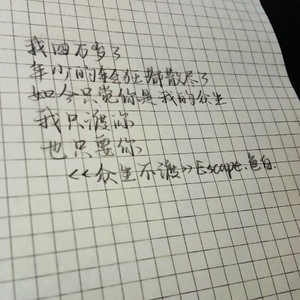 我四百岁了
年少的轻狂都散尽了
如今只觉你是我的众生
我只渡你
也只要你
<<众生不渡>>Escape.逸白.